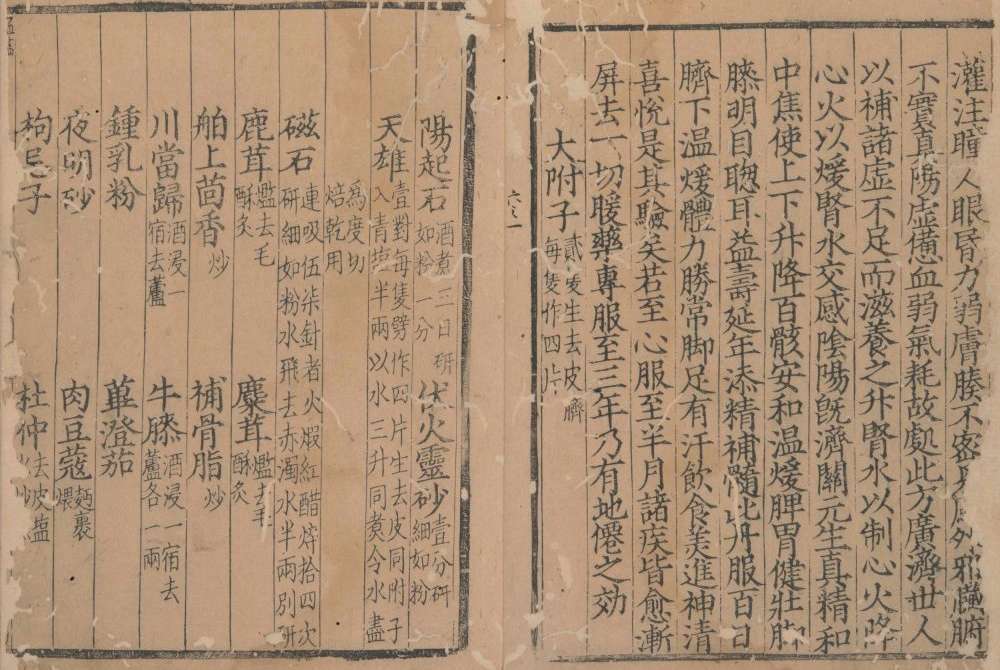 灌注瞳人眼昏力弱膚腠不密外邪臟腑
不實真陽虛憊血弱氣耗故處此方廣濟世人
以補諸虛不足而滋養之升腎水以制心火降
心火以煖腎水交感陰陽旣濟關元生真精和
中焦使上下升降百骸安和温煖脾胃健壯脚
膝明目聦耳益壽延年添精補髓此丹服百日
臍下温煖體力勝常脚足有汗飲食美進神清
喜悅是其驗矣若至心服至半月諸疾皆愈漸
屏去一切暖藥專服至三年乃有地僊之効
大附子 貳隻生去皮臍每隻作四片
陽起石 酒煮三日研如粉一分 伏火靈砂 壹分研細如粉
天雄 壹對每隻劈作四片生去皮同附子入青塩半兩以水三升同煑令水盡
爲度切焙乾用
磁石 連吸伍柒針者火煆紅醋焠拾四次研細如粉水飛去赤濁水半兩別研
鹿茸 爁去毛酥炙 麋茸 爁去毛酥炙
舶上茴香 炒 補骨脂 炒
川當歸 酒浸一宿去蘆 牛膝 酒浸一宿去蘆各一兩
鍾乳粉 蓽澄茄
夜明砂 肉豆蔻 麵裹煨
枸杞子 杜仲 去皮塩炒